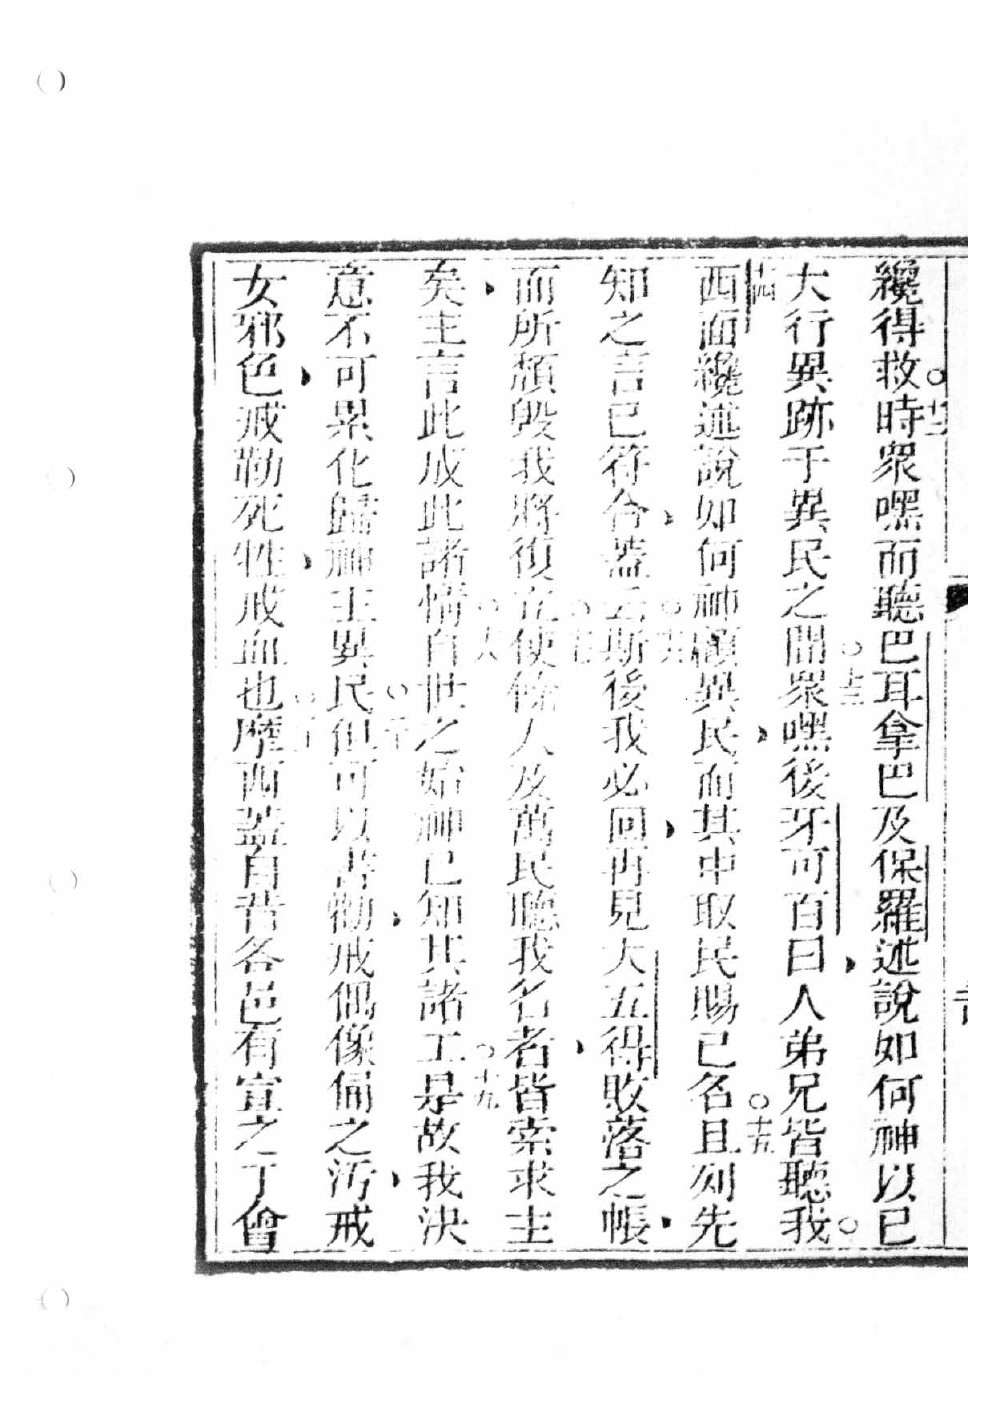 纔得救時眾嘿而聽巴耳拿巴及保羅述說如何神以已
大行異跡于異民之間眾嘿後牙可百曰人弟兄皆聽我
西面纔述說如何神顧異民而其中取民賜己名且列先
知之言已符合蓋云斯後我必回再見大五得敗落之帳
而所頹毀我將復立使餘人及萬民聽我名者皆索求主
矣主言此成此諸情自世之始神已知其諸工是故我決
意不可累化歸神主異民但可以書勸戒偶像偶之污戒
女邪色戒勒死牲戒血也摩西蓋自昔各邑有宣之丁會
十二
十三
十四
十五
十六
十七
十八
十九
二十